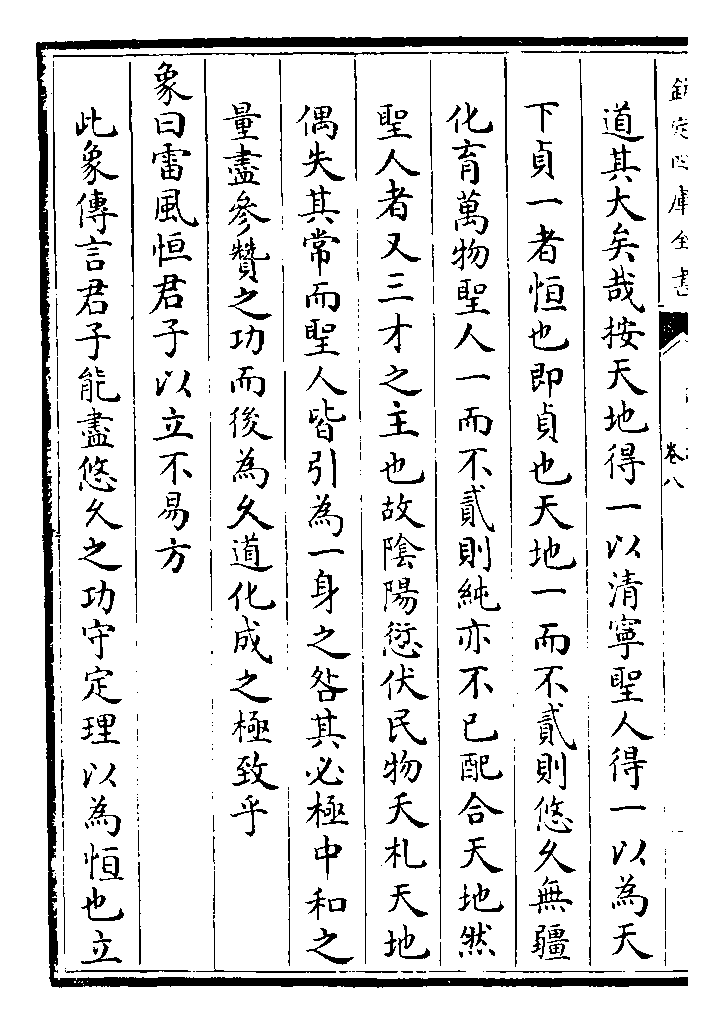 欽定四庫全書
卷八
道其大矣哉按天地得一以清寧聖人得一以為天
下貞一者恒也即貞也天地一而不貳則悠久無疆
化育萬物聖人一而不貳則純亦不已配合天地然
聖人者又三才之主也故陰陽愆伏民物夭札天地
偶失其常而聖人皆引為一身之咎其必極中和之
量盡參贊之功而後為久道化成之極致乎
象曰雷風恒君子以立不易方
此象傳言君子能盡悠久之功守定理以為恒也立